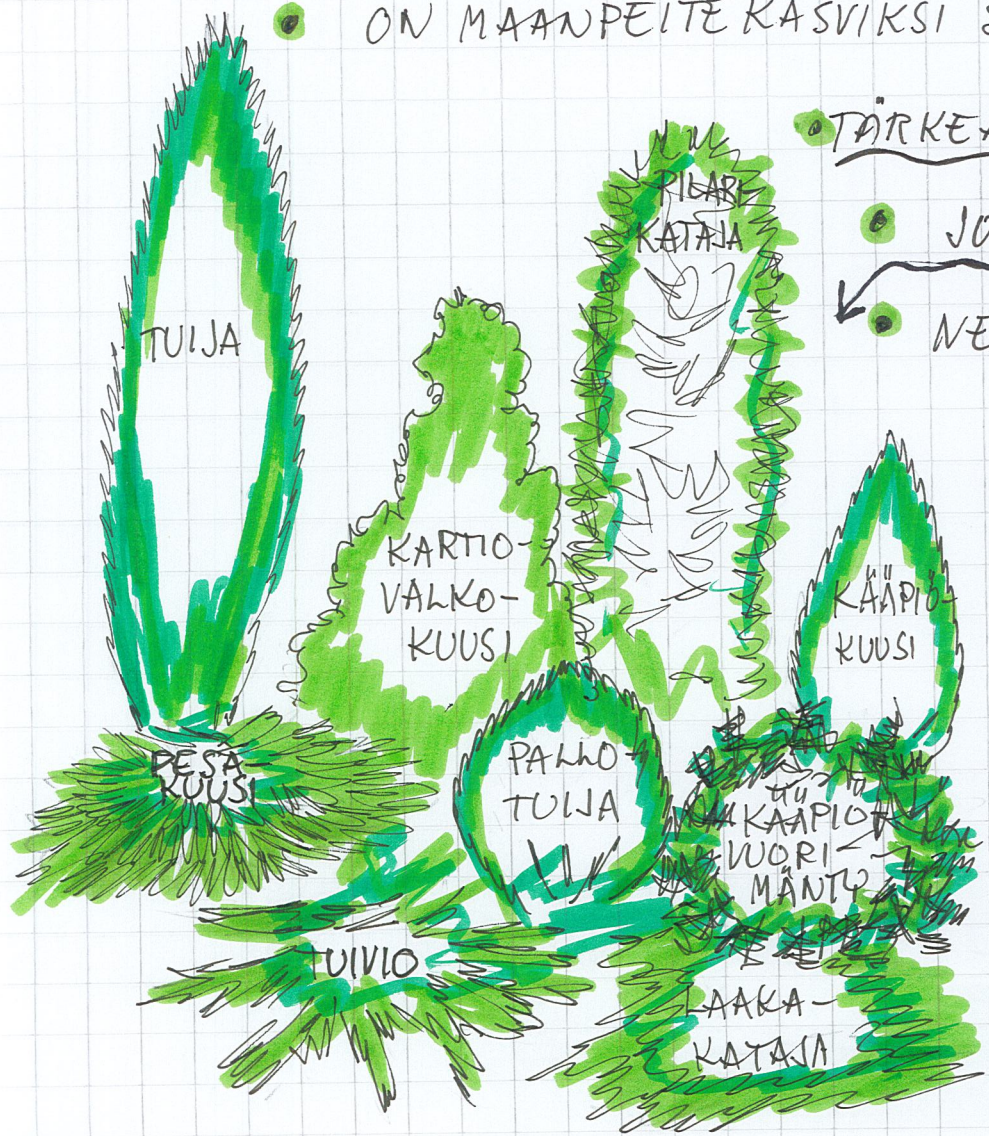 ON MAANPEITEKASVIKSI
TÄRKEÄ
JO
NE
TUIJA
PILARI-
KATAJA
KARTIO-
VALKO-
KUUSI
KÄÄPIÖ-
KUUSI
PESÄ-
KUUSI
PALLO
TUIJA
KÄÄPIÖ-
VUORI-
MÄNTY
TUIVIO
LAAKA-
KATAJA